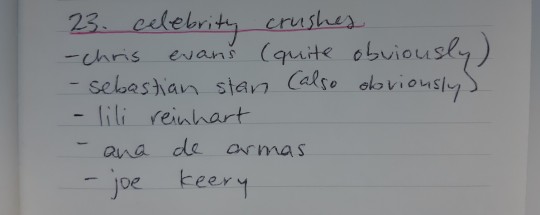 23. celebrity crushes
-chris evans (quite obviously)
- sebastian stan (also obviously)
- lili reinhart
- ana de armas
- joe keery